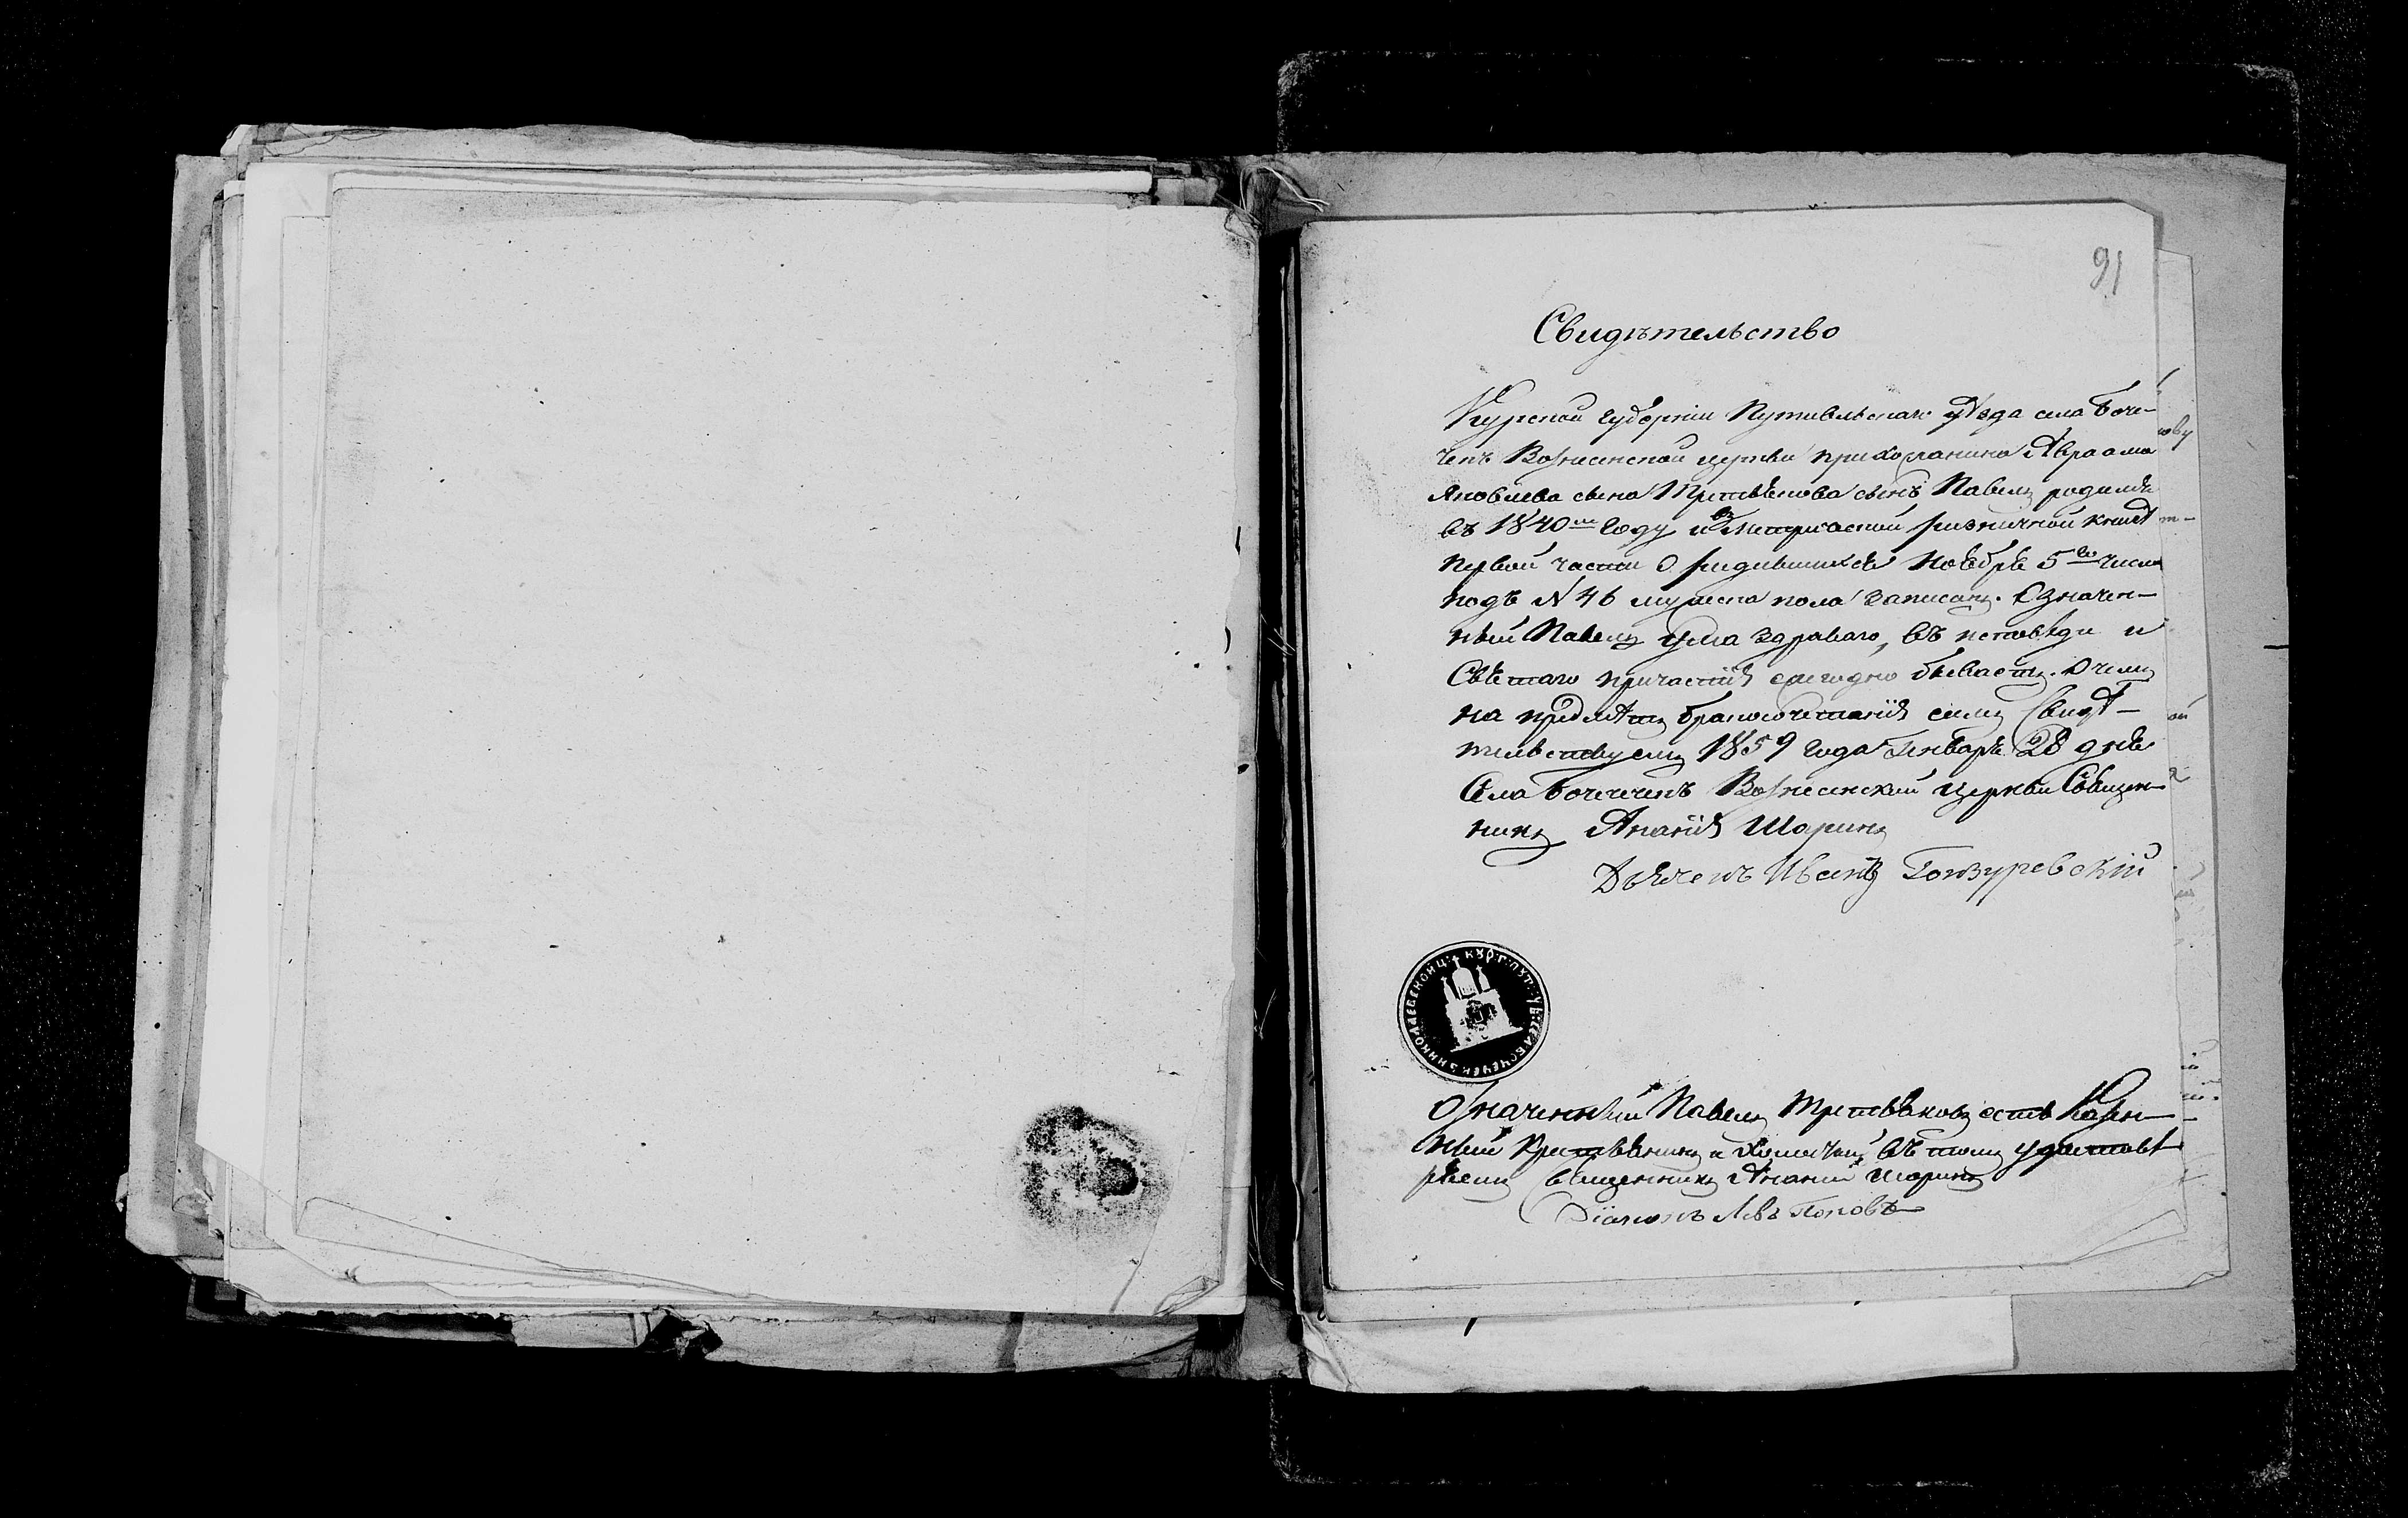 91
Свидѣтельство
Курской губерніи Путивльскаго уѣзда села Боче-
чекъ Вознесенской церкви прихожанина Авраама
Яковлева сына Третьекова сынъ Павелъ родился
въ 1840м году и въ Метрической
первой части о родившихся Ноебре 5го числа
подъ N 46 мужеска пола записанъ. Означен-
ный Павелъ ума здраваго, въ исповеди и
Свѣтаго причастія ежегодно бываетъ. О чемъ
на предметъ бракосочетанія симъ Свидѣ-
тельствуемъ 1859 года Генваре 28 дне
Села Бочечекъ Вознесенской церкви Свѣщен-
никъ Ананія Шоринъ
Дьячекъ Иванъ
КУР:Г:ПУТ:УѢ: СЕЛА БОЧЕЧЕКЪ НИКОЛАЕВСКОЙ Ц:
Означенный Павелъ Третьековъ есть Казен-
ный Крестьянинъ и Холостъ, въ томъ удостовѣ
ряемъ Священникъ Ананій Шоринъ
Діаконъ Левъ Поповъ